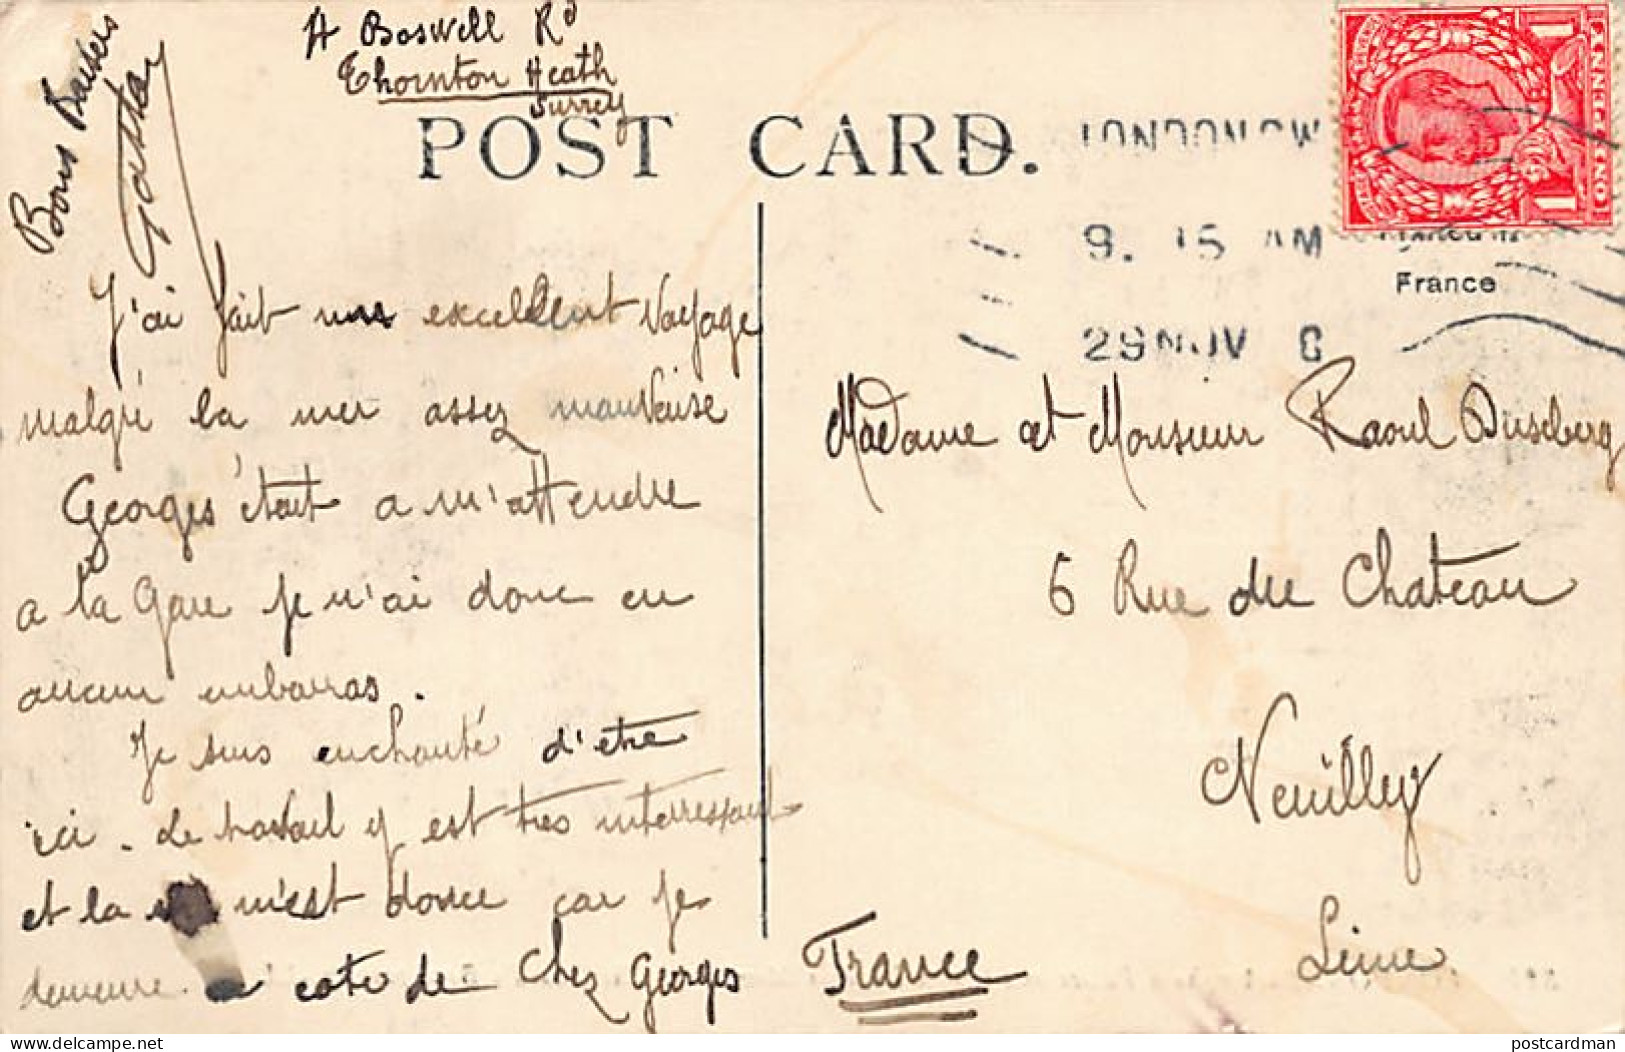 A Boswell Rd
Thornton Heath
Surrey
Bons Baisers
Gaston
POST CARD.
LONDON S W
9. 15 AM
29 NOV
ONE PENNY
France
J'ai fait un excellent voyage
malgré la mer assez mauvaise
Georges était a m'attendre
a la Gare je n'ai donc eu
aucun embarras.
Je suis enchanté d'etre
ici. Le travail y est tres interressant
et la m'est douce car je
demeure a coté de chez Georges
Madame et Monsieur Raoul Duseberg
6 Rue du Chateau
Neuilly
Seine
France
delcampe.net
postcardman